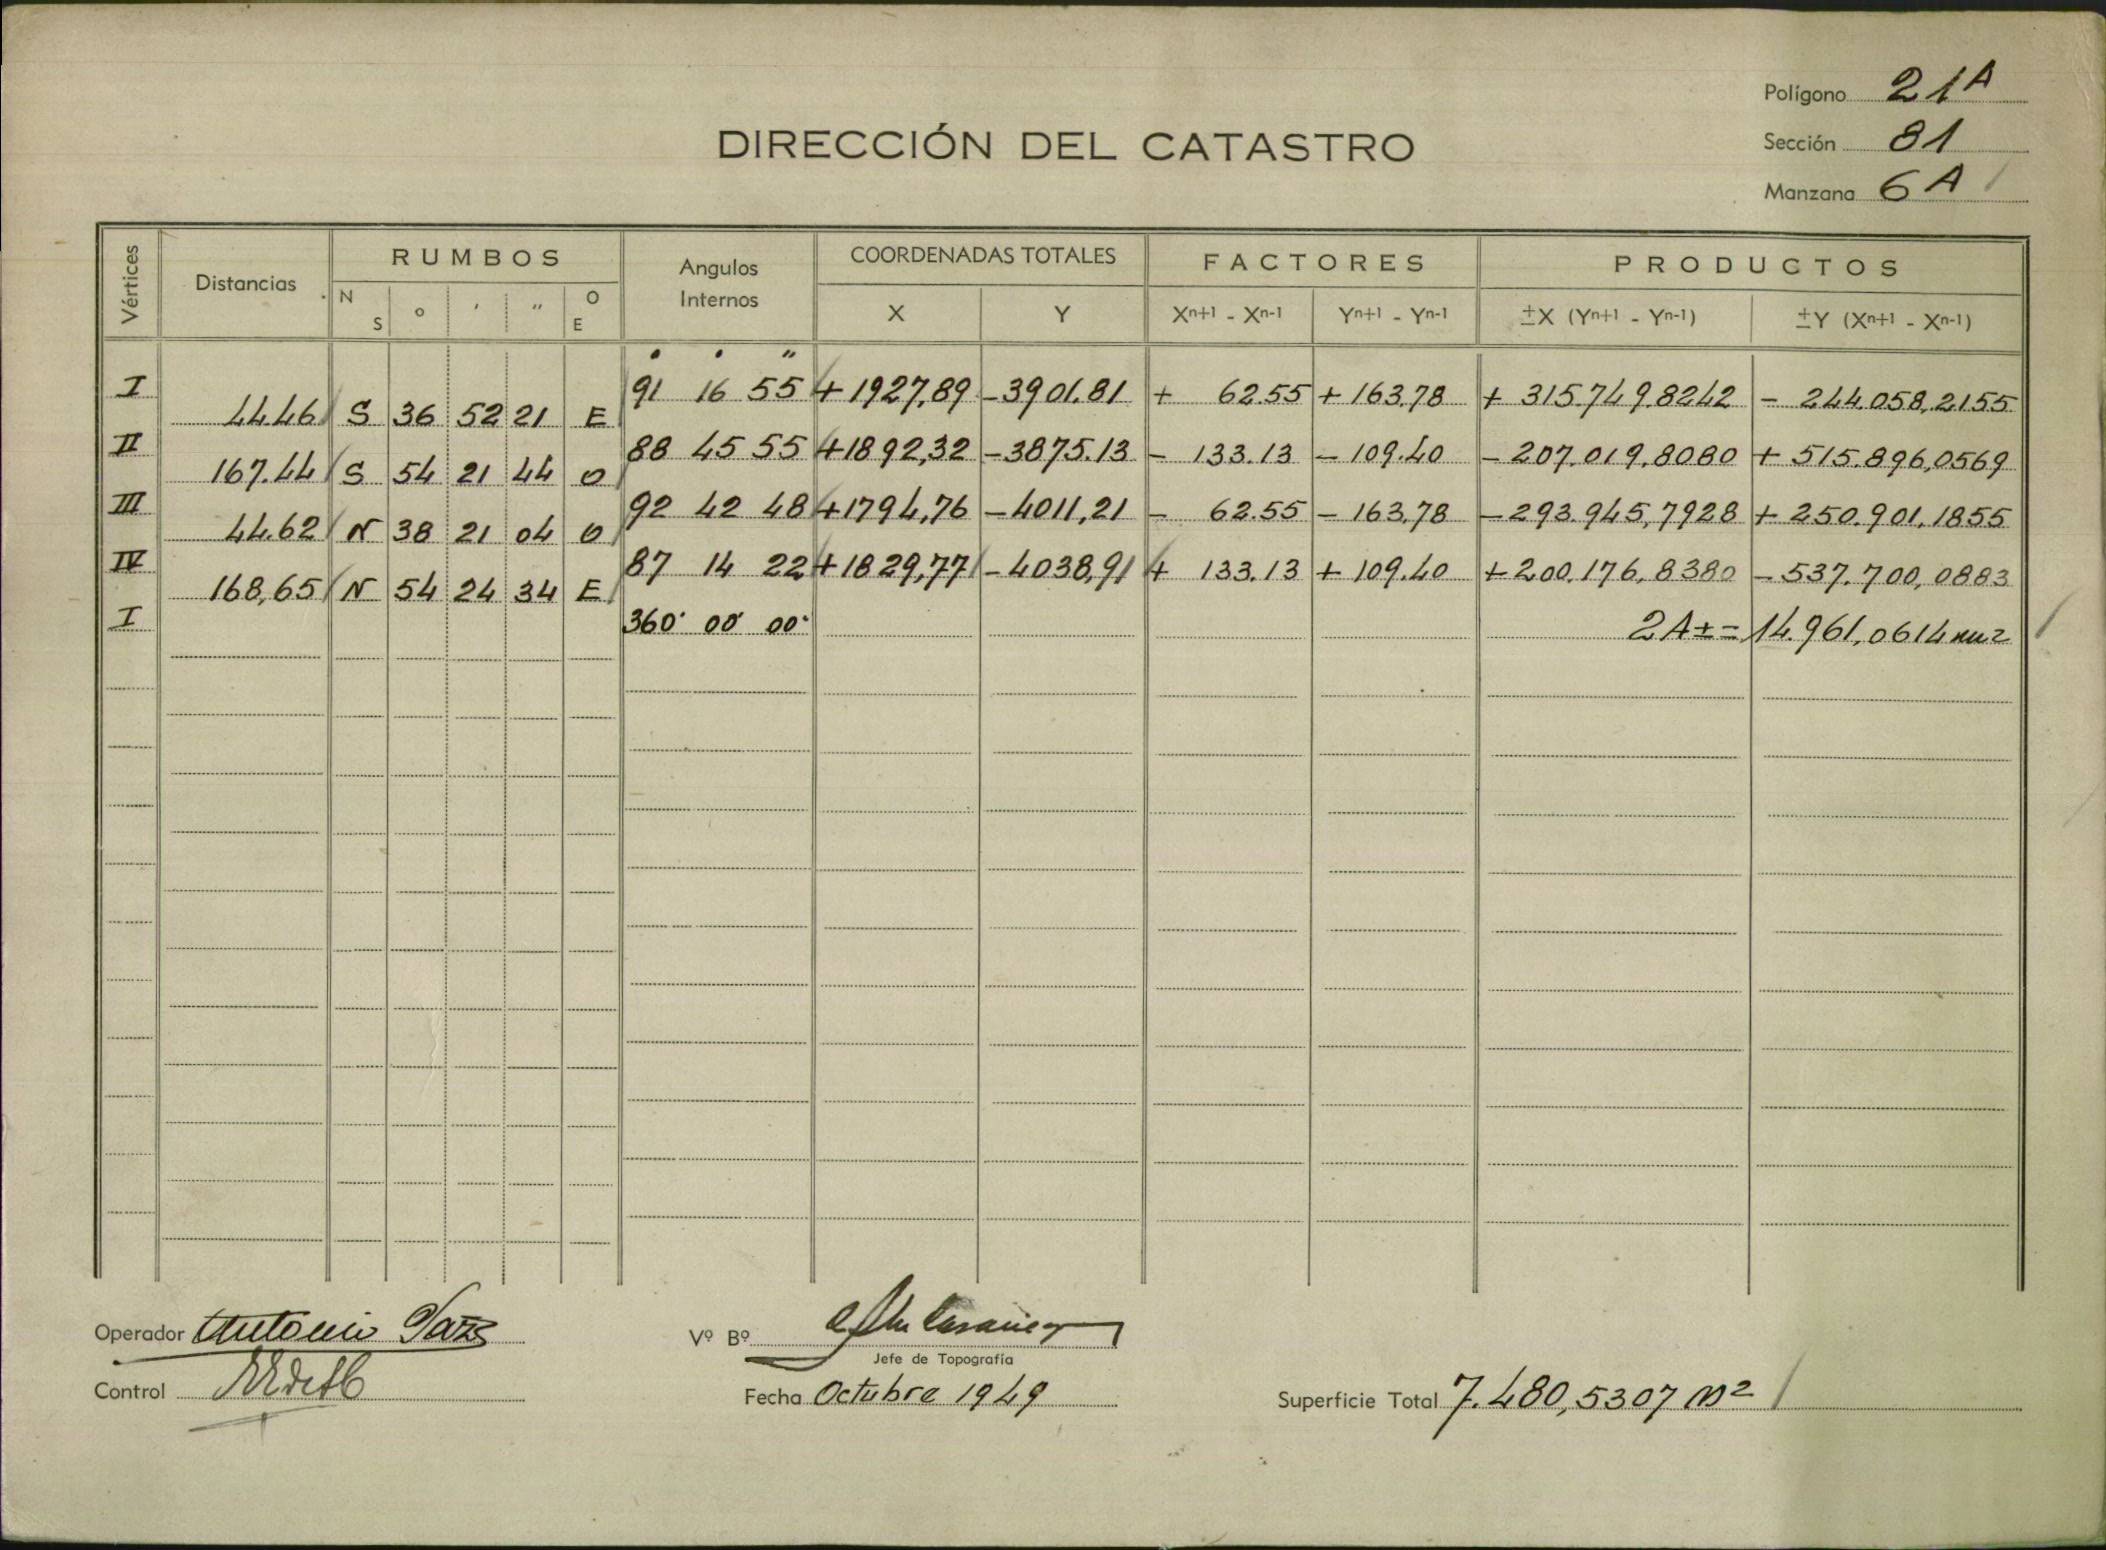 Polígono 21A
DIRECCIÓN DEL CATASTRO
Sección 81
Manzana 6A
Vértices Distancias RUMBOS Angulos Internos COORDENADAS TOTALES FACTORES PRODUCTOS
N S ° ' " O E X Y Xn+1 - Xn-1 Yn+1 - Yn-1 ±X (Yn+1 - Yn-1) ±Y (Xn+1 - Xn-1)
I 91 16 55 +1927,89 -3901.81 + 62.55 +163,78 + 315.749,8242 - 244.058,2155
44.46 S 36 52 21 E
II 88 45 55 +1892,32 -3875.13 - 133.13 -109.40 -207.019,8080 + 515.896,0569
167.44 S 54 21 44 O
III 92 42 48 +1794,76 -4011,21 - 62.55 -163,78 -293.945,7928 + 250.901,1855
44.62 N 38 21 04 O
IV 87 14 22 +1829,77 -4038,91 + 133.13 +109.40 +200.176,8380 -537.700,0883
168,65 N 54 24 34 E
I 360° 00' 00" 2A±= 14.961,0614 m2
Operador Antonio
Vº Bº
Jefe de Topografía
Control
Fecha Octubre 1949
Superficie Total 7.480,5307 m2